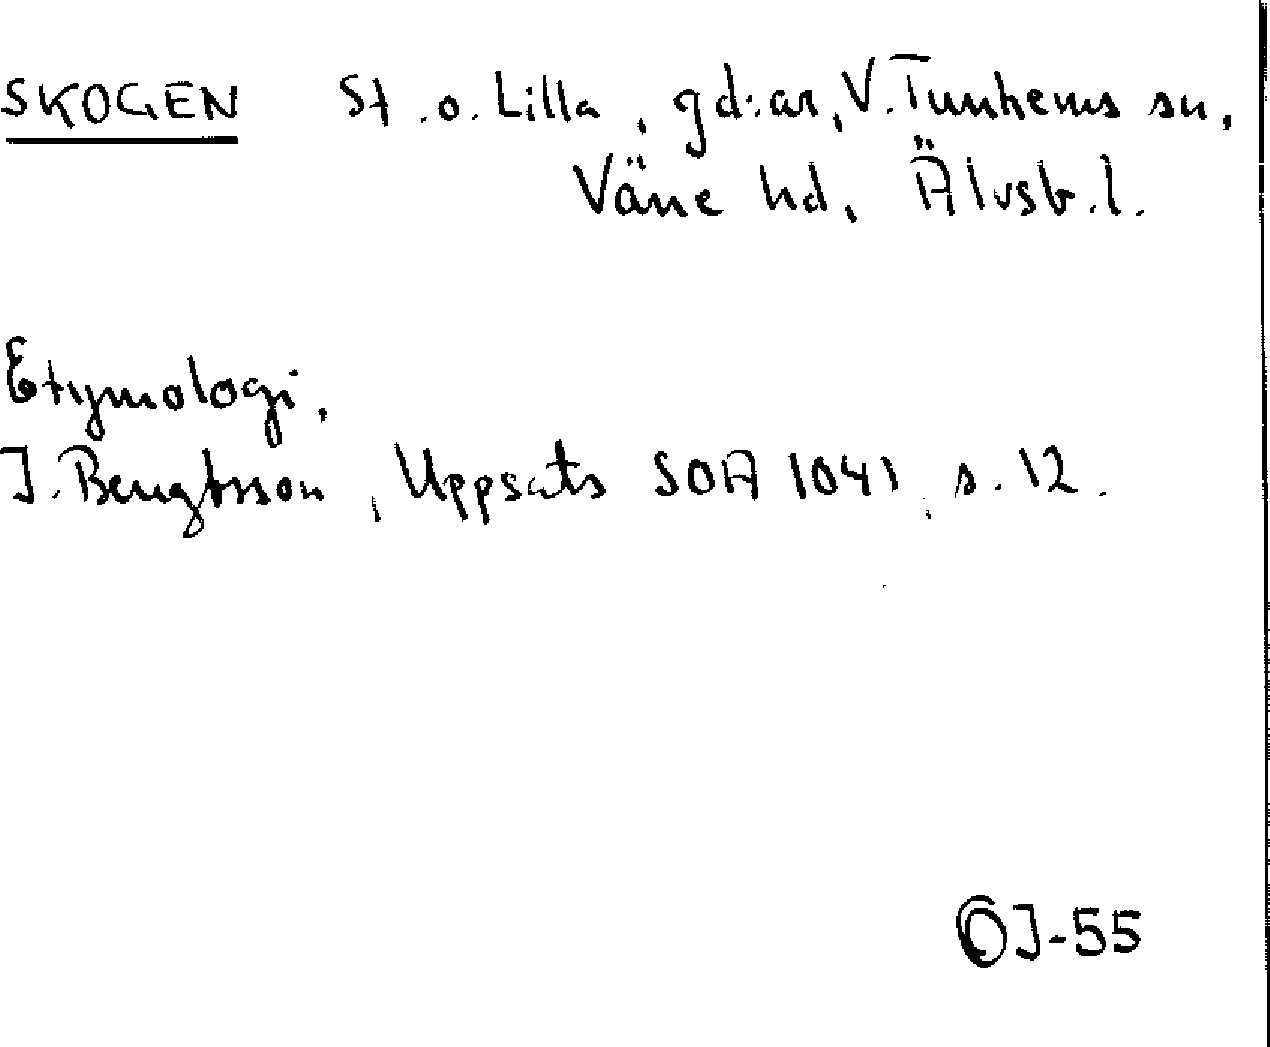 SKOGEN St. o. Lilla, gd:ar, V. Tunhems sn,
Väne hd, Älvsb. l.
Etymologi.
I. Bengtsson, Uppsats SOA 1041, s. 12.
OJ-55